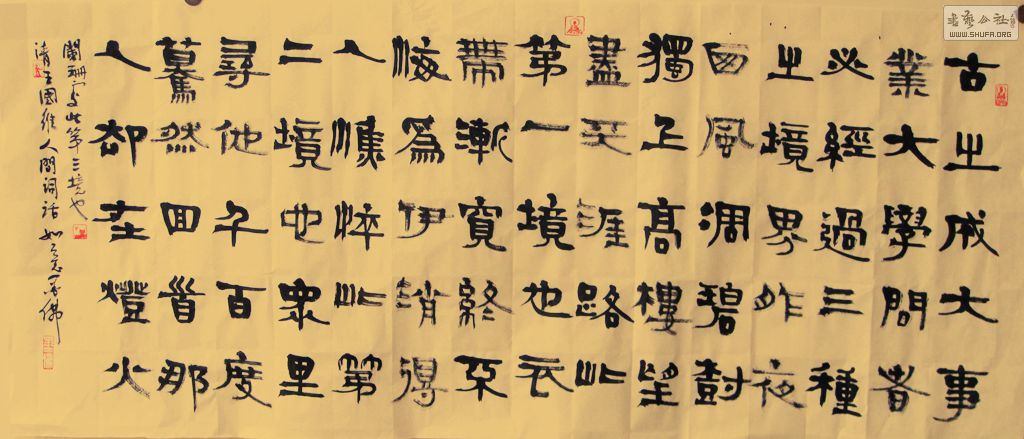 古之成大事
業大學問者
必經過三種
之境界昨夜
西風凋碧樹
獨上高樓望
盡天涯路此
第一境也衣
帶漸寬終不
悔爲伊消得
人憔悴此第
二境也眾里
尋他千百度
驀然回首那
人卻在燈火
闌珊處此第三境也
清王國維人間詞話 如意 佛
書藝公社
WWW.SHUFA.ORG